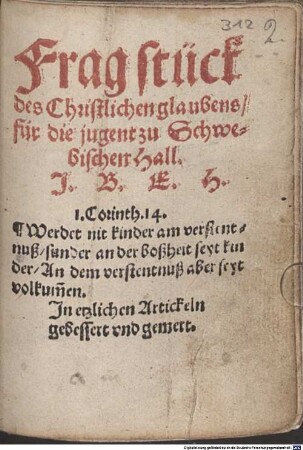 312 2.
Frag stück
des Christlichen glaubens/
für die jugent zu Schwe-
bischen Hall.
J. B. E. H.
1. Corinth. 14.
¶ Werdet nit kinder am verstent-
nuß/sunder an der boßheit seyt kin
der/An dem verstentnuß aber seyt
volkum̃en.
In etzlichen Artickeln
gebessert vnd gemert.